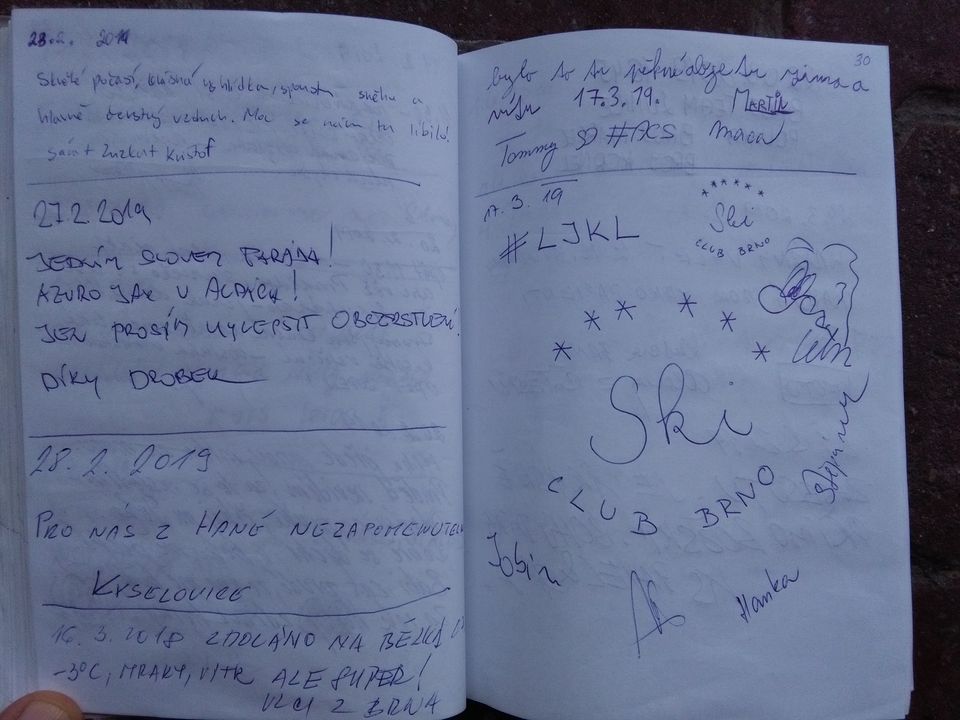 23.2. 2019
Skvělé počasí, krásná vyhlídka, spousta sněhu a
hlavně čerstvý vzduch. Moc se nám tu líbilo!
27.2.2019
JEDNÍM SLOVEM PARÁDA!
AZURO JAK V ALPÁCH!
JEN PROSÍM VYLEPŠIT OBČERSTVENÍ!
DÍKY DROBEK
28. 2. 2019
PRO NÁS Z HANÉ NEZAPOMENUTELN
KYSELOVICE
16. 3. 2018 ZDOLÁNO NA BĚŽKÁ
-3°C, MRAKY, VÍTR ALE SUPER!
VLCI Z BRNA
30
bylo to tu pěkné dobze tu zima a
17.3.19. MARTIN
Tommy #ACS maca
17. 3. 19
#LJKL
Ski
CLUB BRNO
Ski
CLUB BRNO
Tobin
Hanka